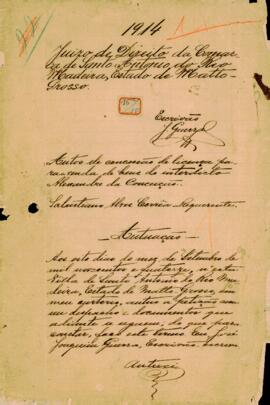 1914
Juizo de Direito da Comar-
ca de Santo Antonio do Rio
Madeira, Estado de Matto-
Grosso.
Escrivão
J. Guerra
Autos de concessão de licença pa-
ra venda de bens do interdicto
Alexandre da Conceição.
Salustiano Alves Corrêa, Requerente.
Autuação
Aos sete dias do mez de Setembro de
mil novecentos e quatorze, n'esta
Villa de Santo Antonio do Rio Ma-
deira, Estado de Matto Grosso, em
meu cartorio, autuo a petição com
seu despacho e documentos que
adiante se seguem, do que para
constar, faço este termo. Eu José
Joaquim Guerra, Escrivão, escrevi
Autuei